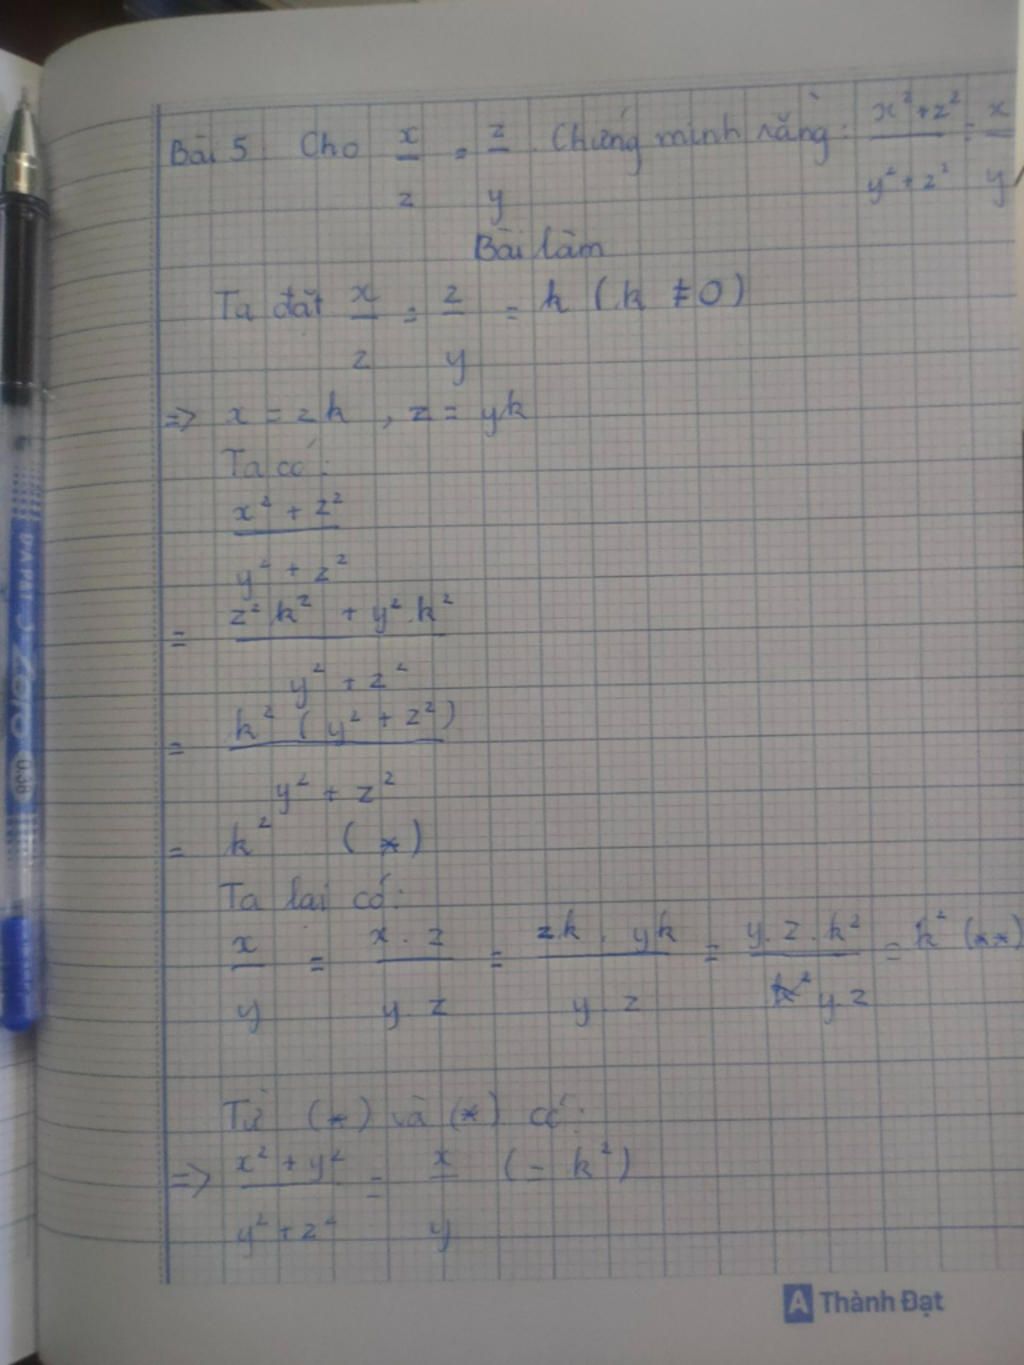 Bài 5 Cho x/z = z/y. Chứng minh rằng: x²+z²/y²+z² = x/y
Bài làm
Ta đặt x/z = z/y = k (k ≠ 0)
=> x = zk, z = yk
Ta có:
x² + z²/y² + z²
= z² k² + y².k²/y² + z²
= k² (y² + z²)/y² + z²
= k² (*)
Ta lại có:
x/y = x.z/y.z = zk.yk/y.z = y.z.k²/y.z = k² (**)
Từ (*) và (*) có:
=> x² + y²/y² + z² = x/y (= k²)
A Thành Đạt
0.38